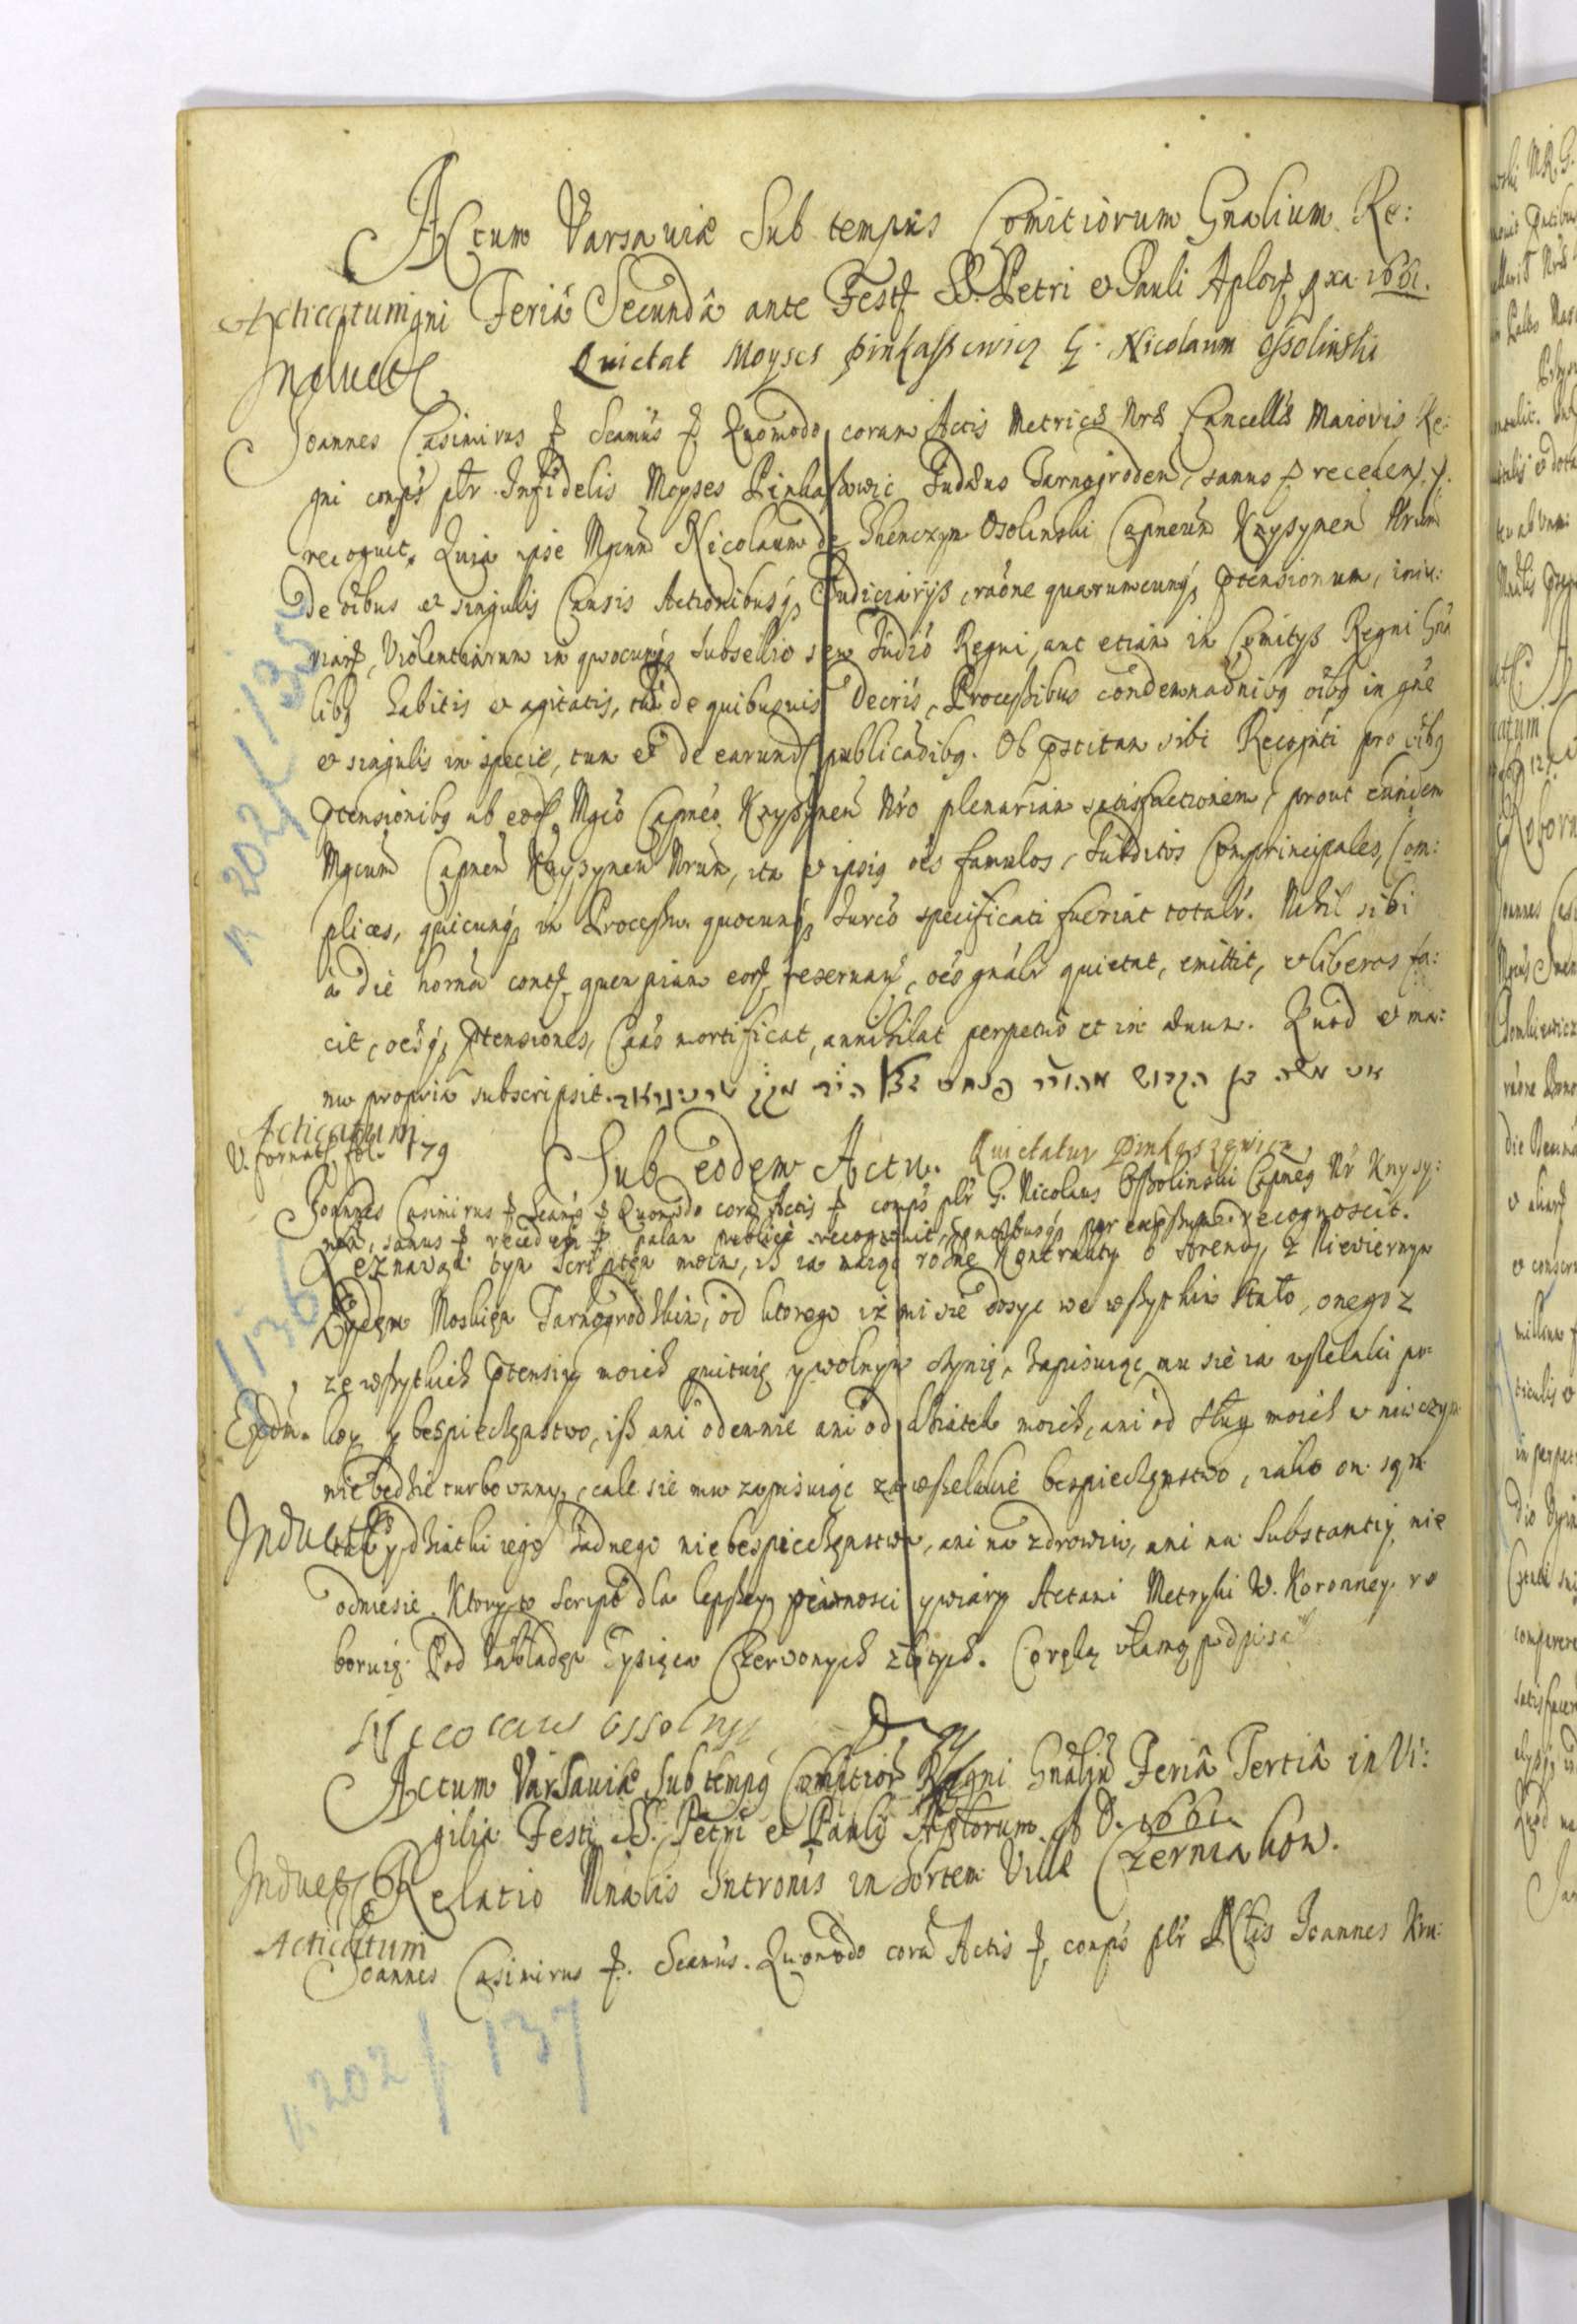 Actum Varsaviæ Sub tempus Comitiorum Gnalium Re:
Acticatum gni Feriâ Secundâ ante Festũ SS. Petri et Pauli Aplorũ pxa 1661.
Induct̃
Quietat Moyses Pinkaszewicz G. Nicolaum Ossolinski
Joannes Casimirus Seamus Quomodo coram Actis Metrices Nrae Cancellis Maioris Re:
gni compś plr Infidelis Moyses Pinkaszowic Judæus Tarnogroden, sanus recedens
recognit. Quia ipse Mgcum Nicolaum de Thenczyn Osolinski Capneum Knysynen Nrum
De oibus et singulis Causis Actionibusq Judiciarijs, raone quarumcunq ptensionum, iniu:
riarũ, Violentiarum in quocunq Subsellio seu Judio Regni, aut etiam in Comitys Regni Gna
libq habitis et agitatis, tũ de quibusuis Decris, Processibus condemnadniq oibq in gne
et singulis in specie, tum et de earund publicaoibq. Ob pstitam sibi Recognti pro oibq
ptensionibq ab eod Mgco Capneo Knysynen Nro plenariam satisfactionem, prout eundem
Mgcum Capnen Knysynen Nrum, ita et ipsiq oes famulos, Subditos Comprincipales, Com:
plices, quicunq in Processu quocunq Jurco specificati fuerint totalr. Nihil sibi
à die horna contũ quempiam eorũ reseruans, oes gnalr quietat, emittit, et liberos fa:
cit, oesq ptensiones, Caas mortificat, annihilat perpetuo et in æuum. Quod et ma:
nu propria subscripsit. נאו משה בן הקדוש מהורר פנחס זצל
Acticatum
V. fol. 179
Sub eodem Actu. Quietatur Pinkaszewicz
Joannes Casimirus Seamus Quomodo coram Actis compś plr G. Nicolaus Ossolinski Capneq Nr Knysy:
nen, sanus recedens palam publice recognouit, recognoscit.
Zeznawąm tym Scriptem moim, iż ia maiąc rożne Kontrakty o Arendy, z Niewiernym
Zydem Moskiem Tarnogrodzkim, od ktorego iż mi sie dosyc we wszytkim stało, onego z
ze wszytkich ptensiy moich quituię y wolnym czynię, zapisuiąc mu sie ia wszelaki po:
koy y bespieczęnstwo, isz ani odemnie ani od dziatek moich, ani od sług moich w niwczym
nie będzie turbowany, cale sie mu zapisuiąc za wszelakie bespieczęnstwo, iako on sąm
Induct̃
tak y dziatki iego żadnego niebespieczęnstwa, ani na zdrowiu, ani na Substantiy nie
odniesie. Ktory to Script dla lepszey pewnosci y wiary Actami Metryki W. Koronney ro
boruię. Pod zakładęm Tysiąca Czerwonych złotych. Co ręką własną podpisał
Nicolaus Ossolnsj
Actum Varsauiæ Sub tempq Comitiorũ Regni Gnaliũ Feriâ Tertiâ in Vi:
gilia Festi SS. Petri et Pauli Aplorum A D. 1661.
Induct̃ Relatio Mnalis Intronis in Sortem Villæ Czerniakow.
Acticatum
Joannes Casimirus Seamus. Quomodo corã Actis compś plr Joannes Kru:
k 202/135
/136
k. 202/137